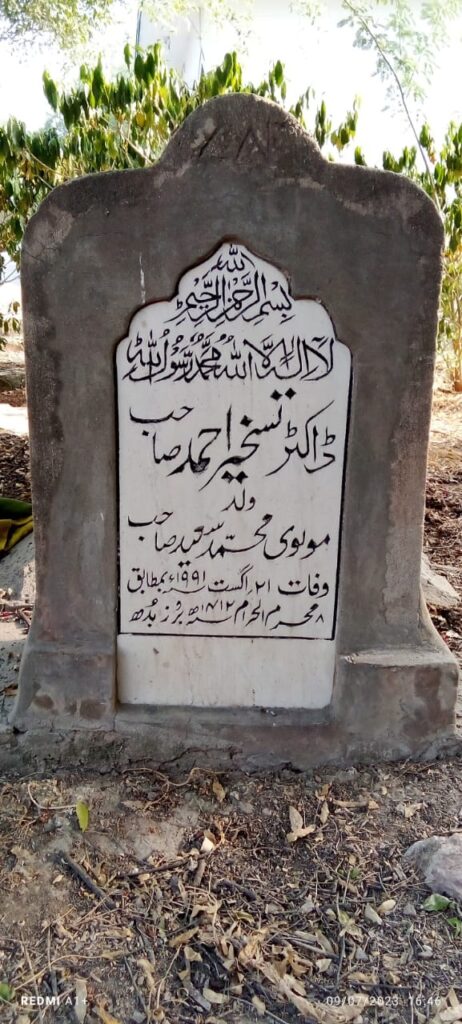 بسم الله الرحمن الرحيم
لا اله الا الله محمد رسول الله
ڈاکٹر تسخیر احمد صاحب
ولد
مولوی محمد سعید صاحب
وفات ۲۱ اگست ۱۹۹۱ء بمطابق
۸ محرم الحرام ۱۴۱۲ھ بروز بدھ
REDMI A1+
09/07/2023 16:46